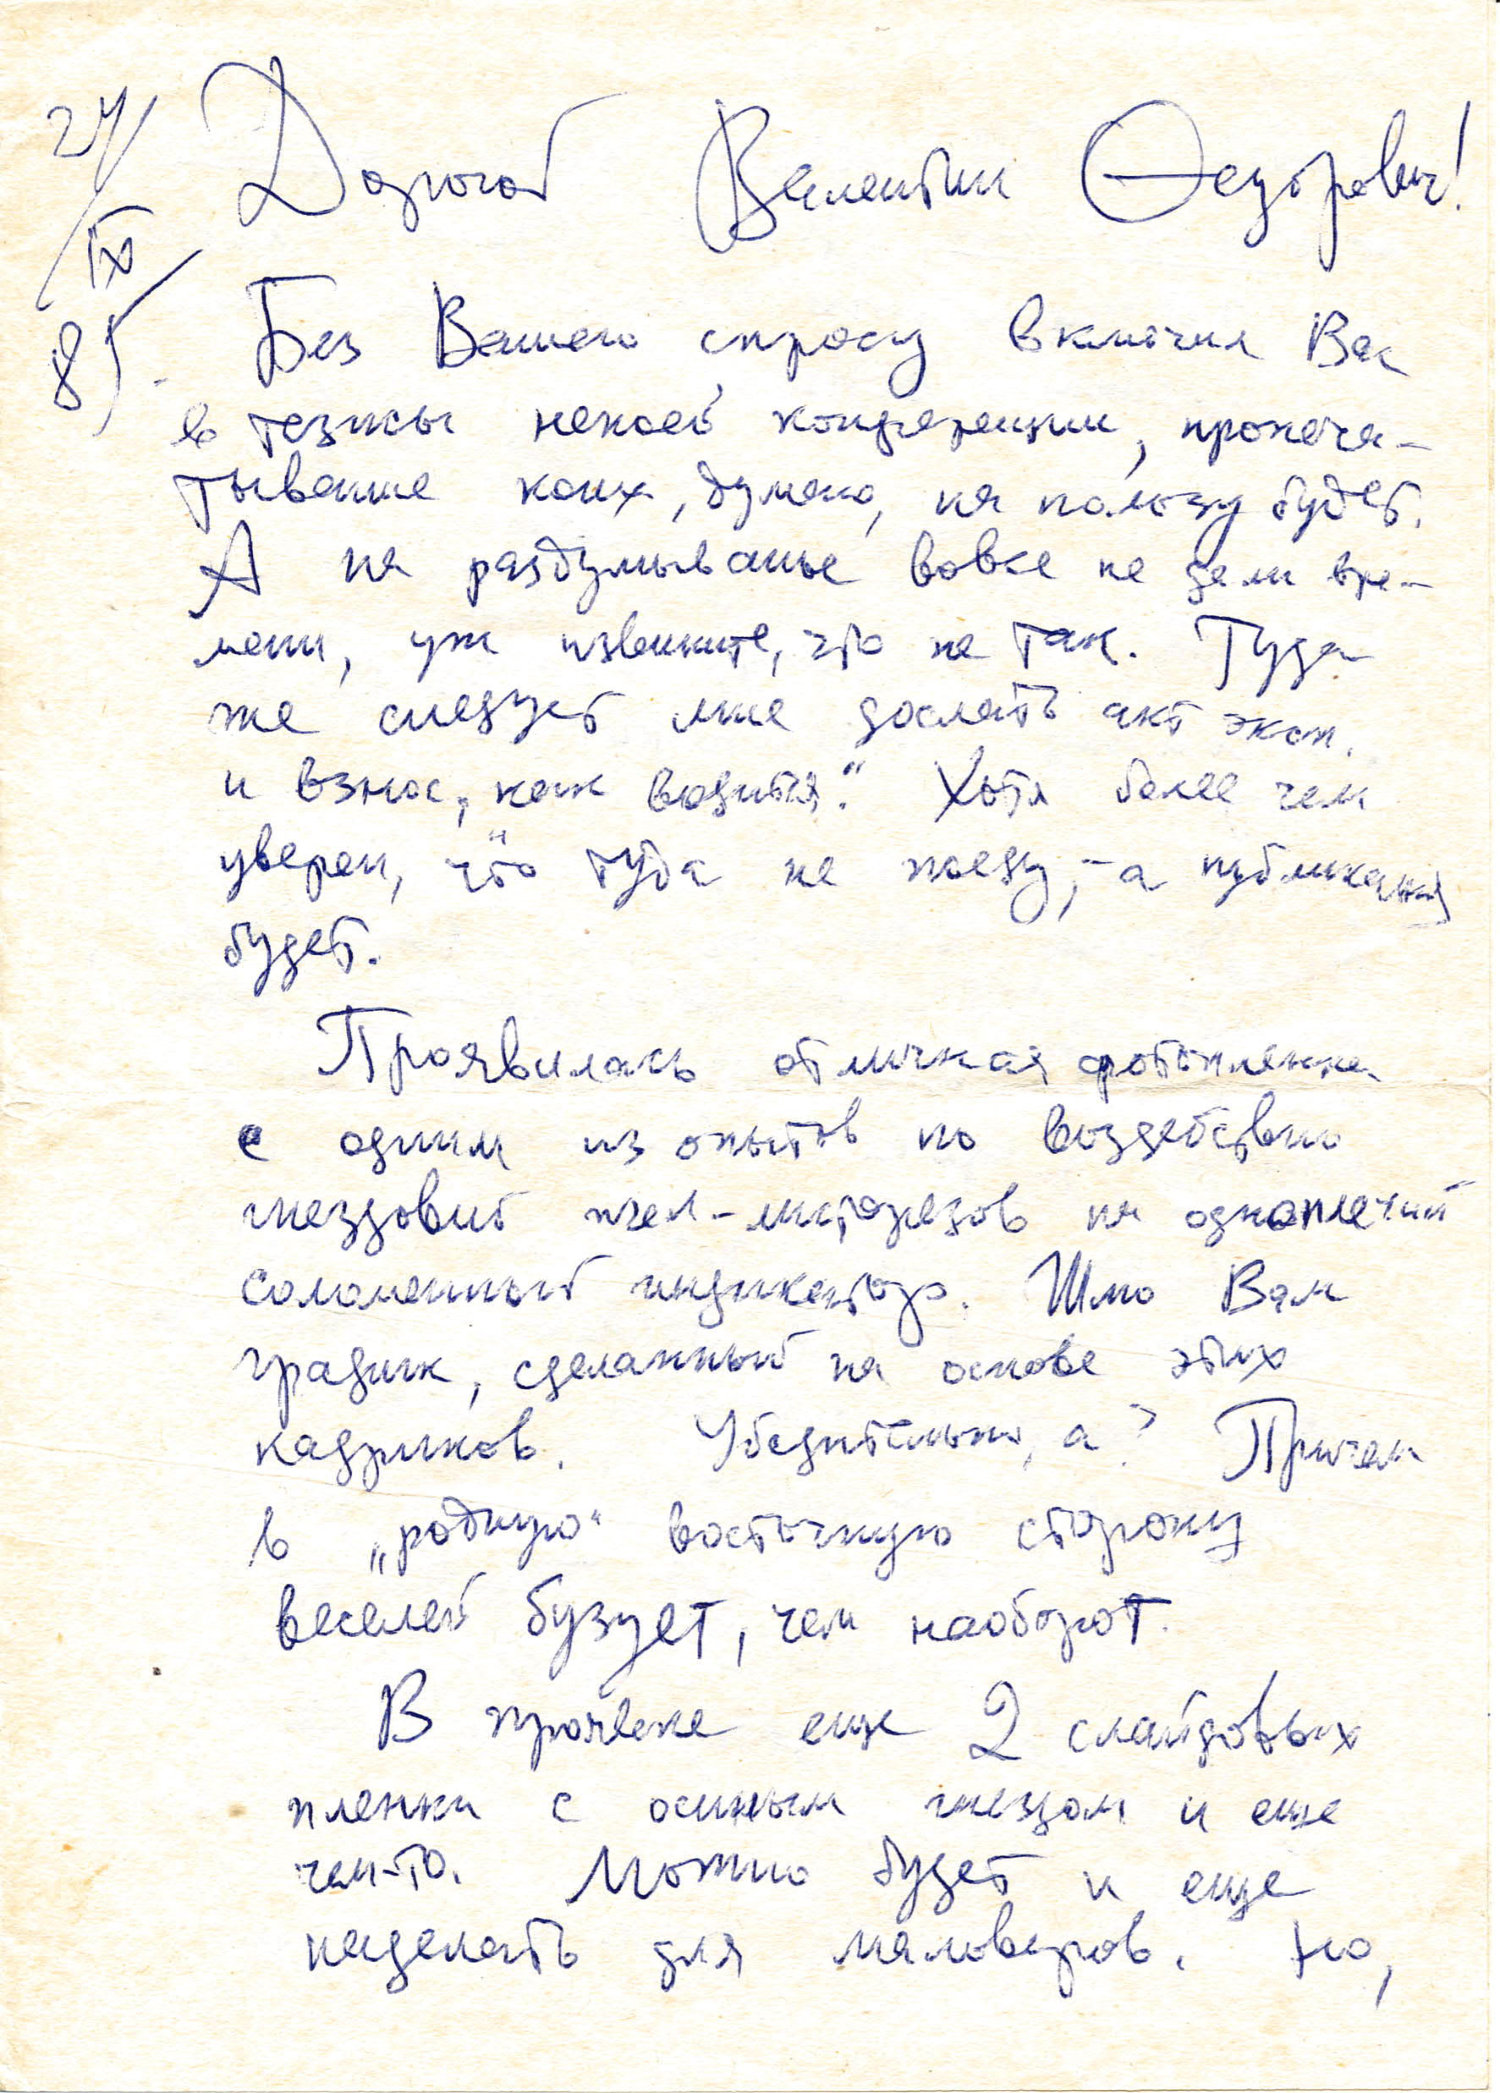 24/IX 85.
Дорогой Валентин Федорович!
Без Вашего спросу включил Вас
в тезисы некоей конференции, пропеча-
тывание коих, думаю, на пользу будет.
А на раздумыванье вовсе не дали вре-
мени, уж извините, что не так. Туда
же следует мне дослать акт эксп.
и взнос, "как водится." Хотя более чем
уверен, что туда не поеду, – а публикация
будет.
Проявилась отличная фотопленка
с одним из опытов по воздействию
гнездовий пчел-листорезов на одноплечий
соломенный индикатор. Шлю Вам
график, сделанный на основе этих
кадриков. Убедительно, а? Причем
в „родную“ восточную сторону
веселей бузует, чем наоборот.
В проявке еще 2 слайдовых
пленки с осиным гнездом и еще
чем-то. Можно будет и еще
наделать для маловеров. Но,